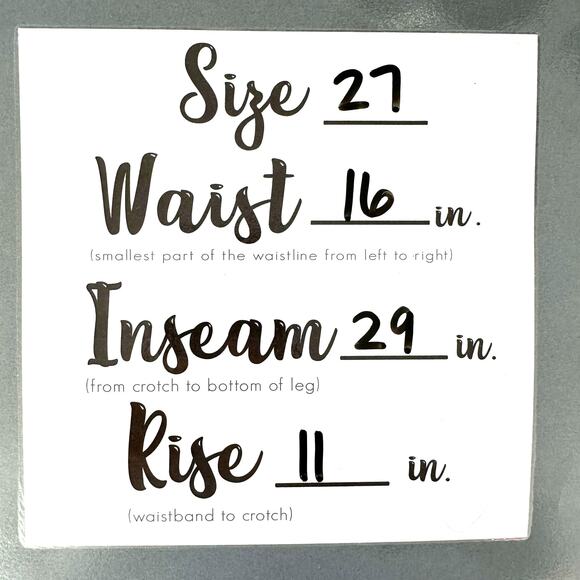 Size 27
Waist 16 in.
(smallest part of the waistline from left to right)
Inseam 29 in.
(from crotch to bottom of leg)
Rise 11 in.
(waistband to crotch)